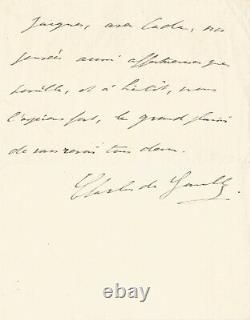 Jacques, avec Cada, nos
pensées aussi affectueuses que
possible, et à bientôt, nous
l'espérons fort, le grand plaisir
de vous revoir tous deux.
Charles de Gaulle.
© thumbimg.com